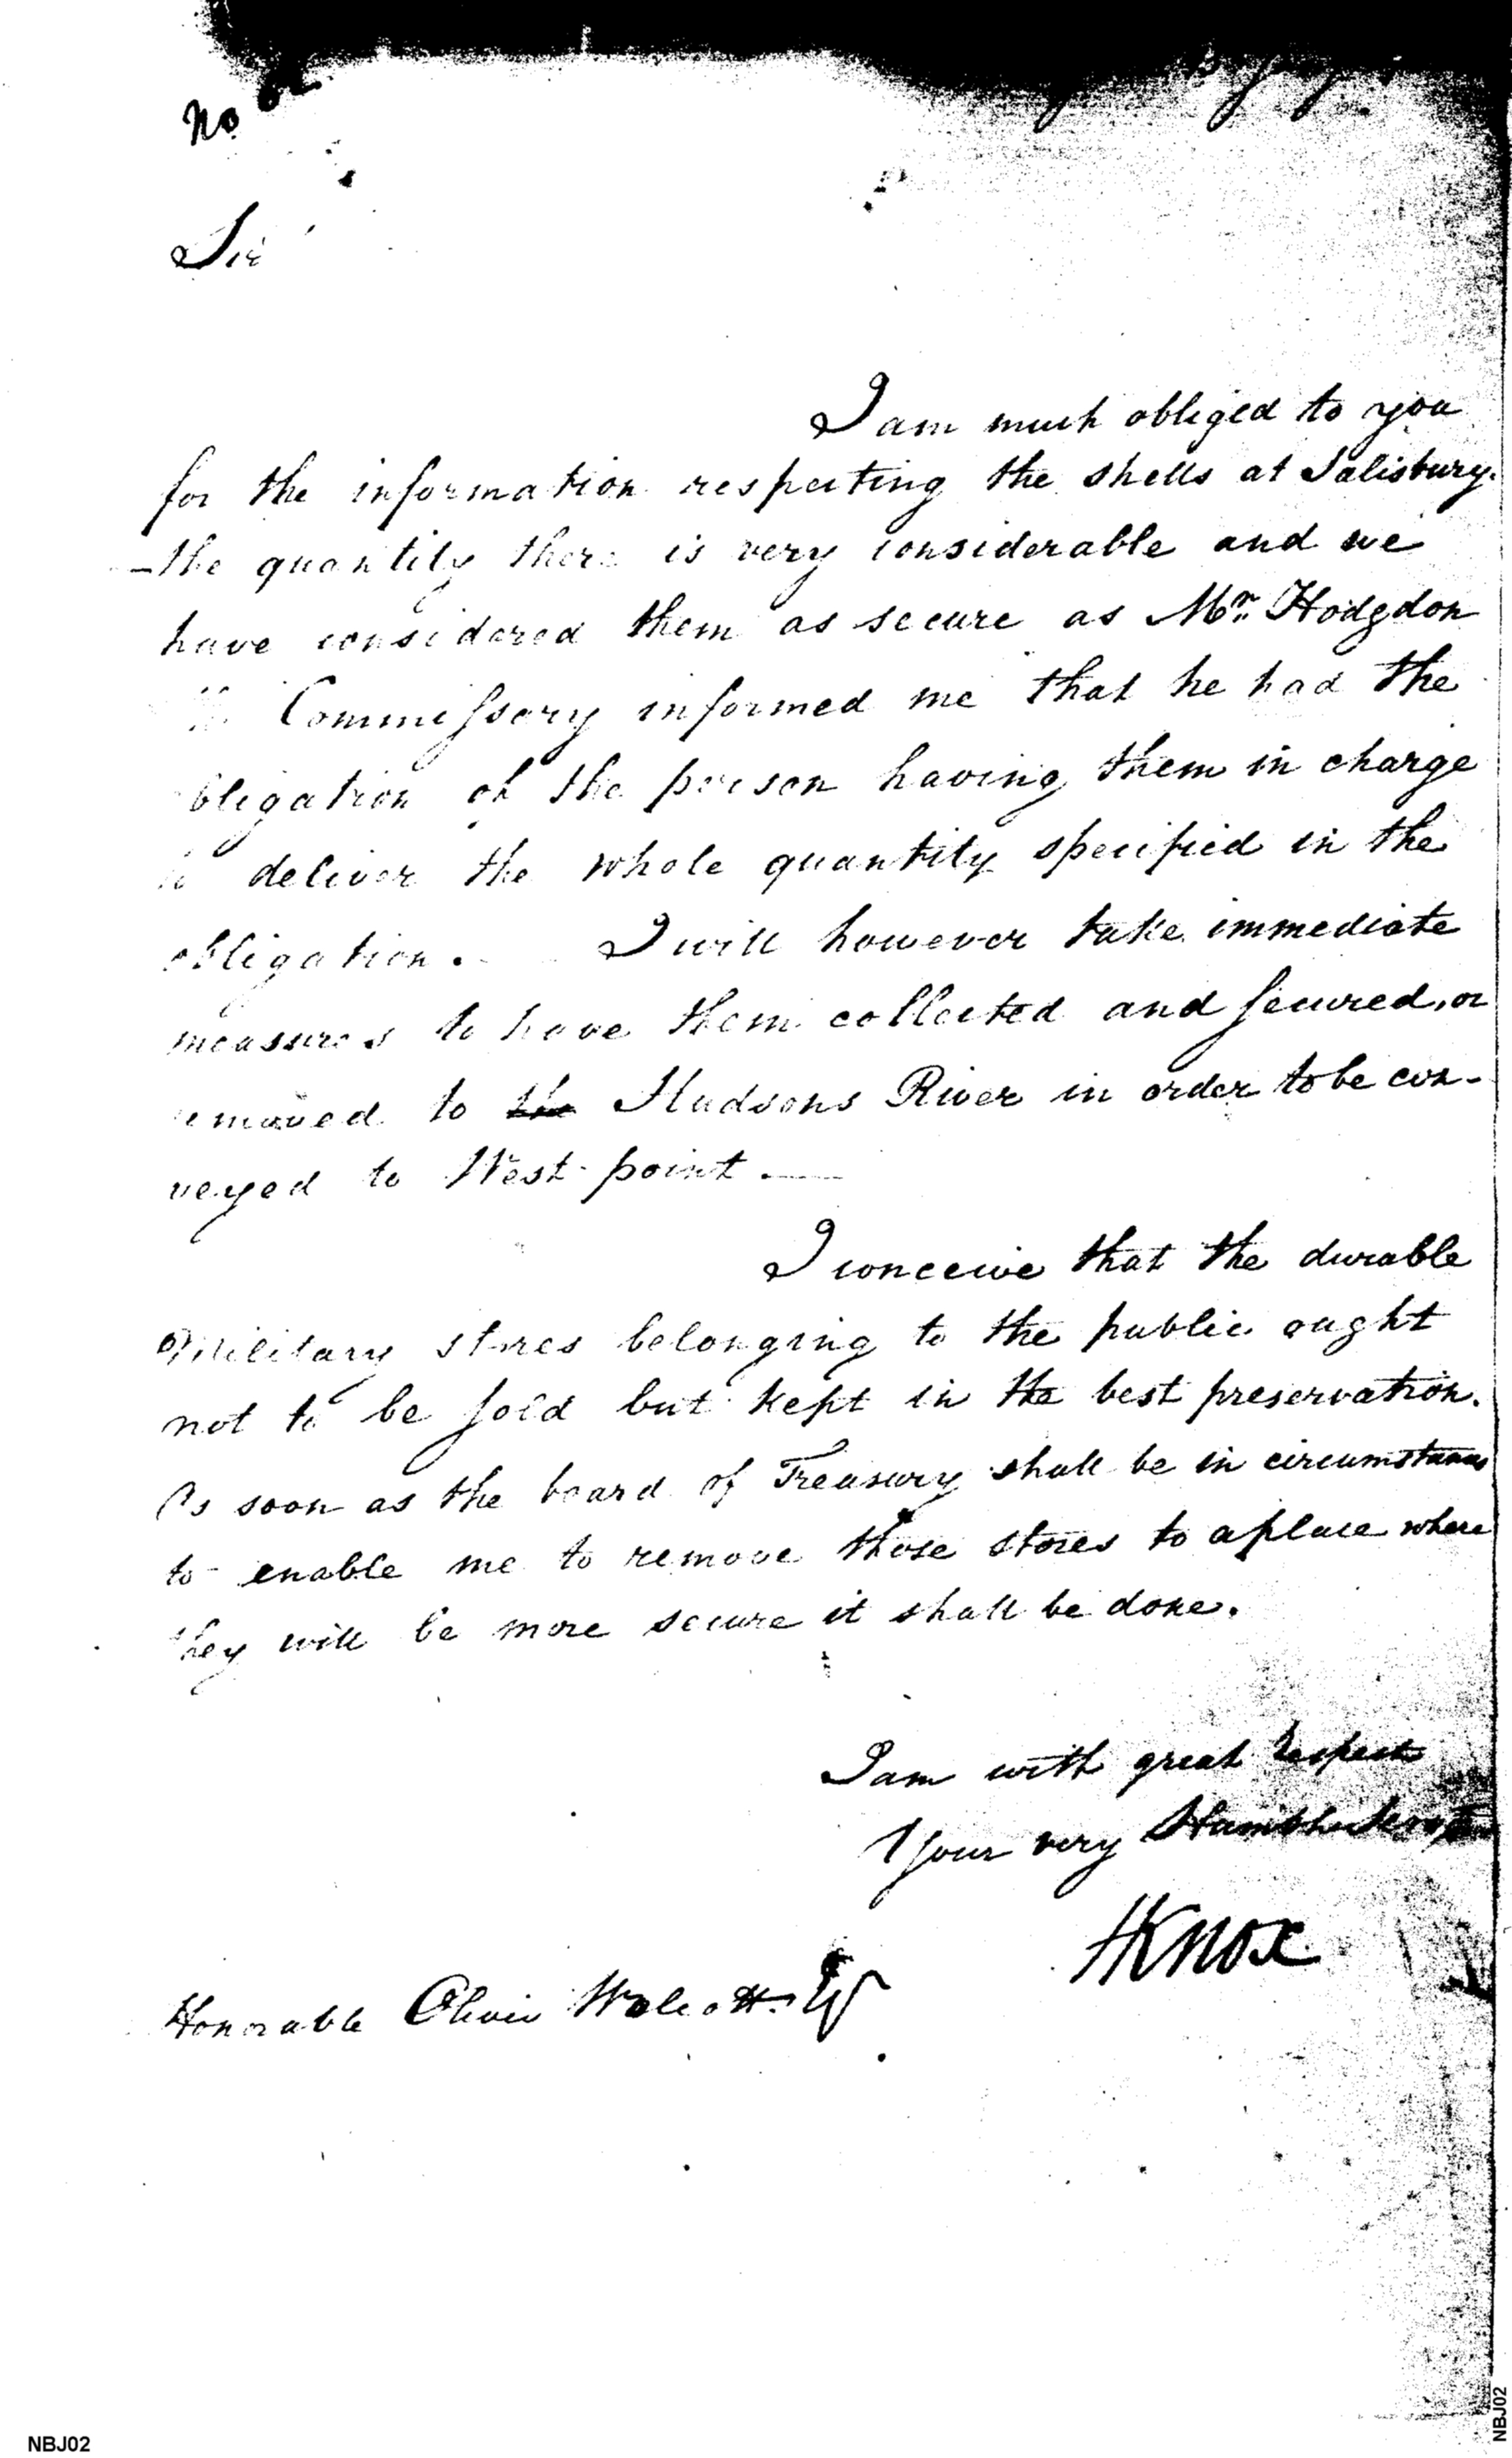 No
Sir
I am much obliged to you
for the information respecting the shells at Salisbury.
–the quantity there is very considerable and we
have considered them as secure as Mr. Hodgdon
Commissary informed me that he had the
bligation of the person having them in charge
to deliver the whole quantity specified in the
obligation. I will however take immediate
measures to have them collected and secured, or
removed to the Hudsons River in order to be con-
veyed to West-point.—
I conceive that the durable
Military stores belonging to the public ought
not to be sold but kept in the best preservation.
As soon as the board of Treasury shall be in circumstances
to enable me to remove those stores to a place where
they will be more secure it shall be done.
I am with great respect
Your very Humble
HKnox
Honorable Oliver Wolcott
NBJ02
NBJ02